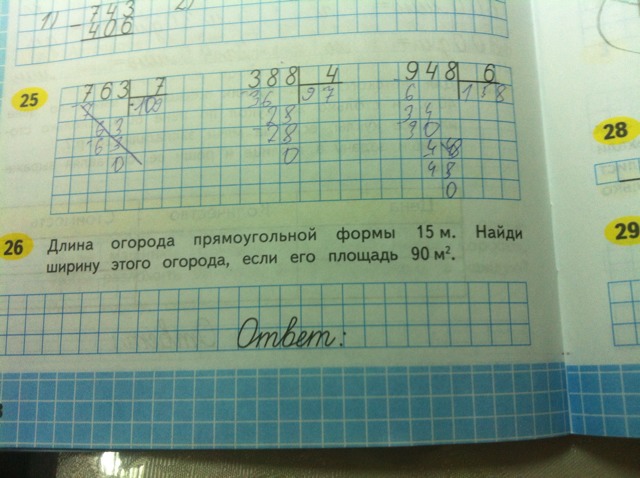 1) - 743
400
2)
25
763 7
7 109
63
63
0
388 4
36 97
28
28
0
948 6
6 158
34
30
48
48
0
28
26 Длина огорода прямоугольной формы 15 м. Найди
ширину этого огорода, если его площадь 90 м².
29
Ответ: